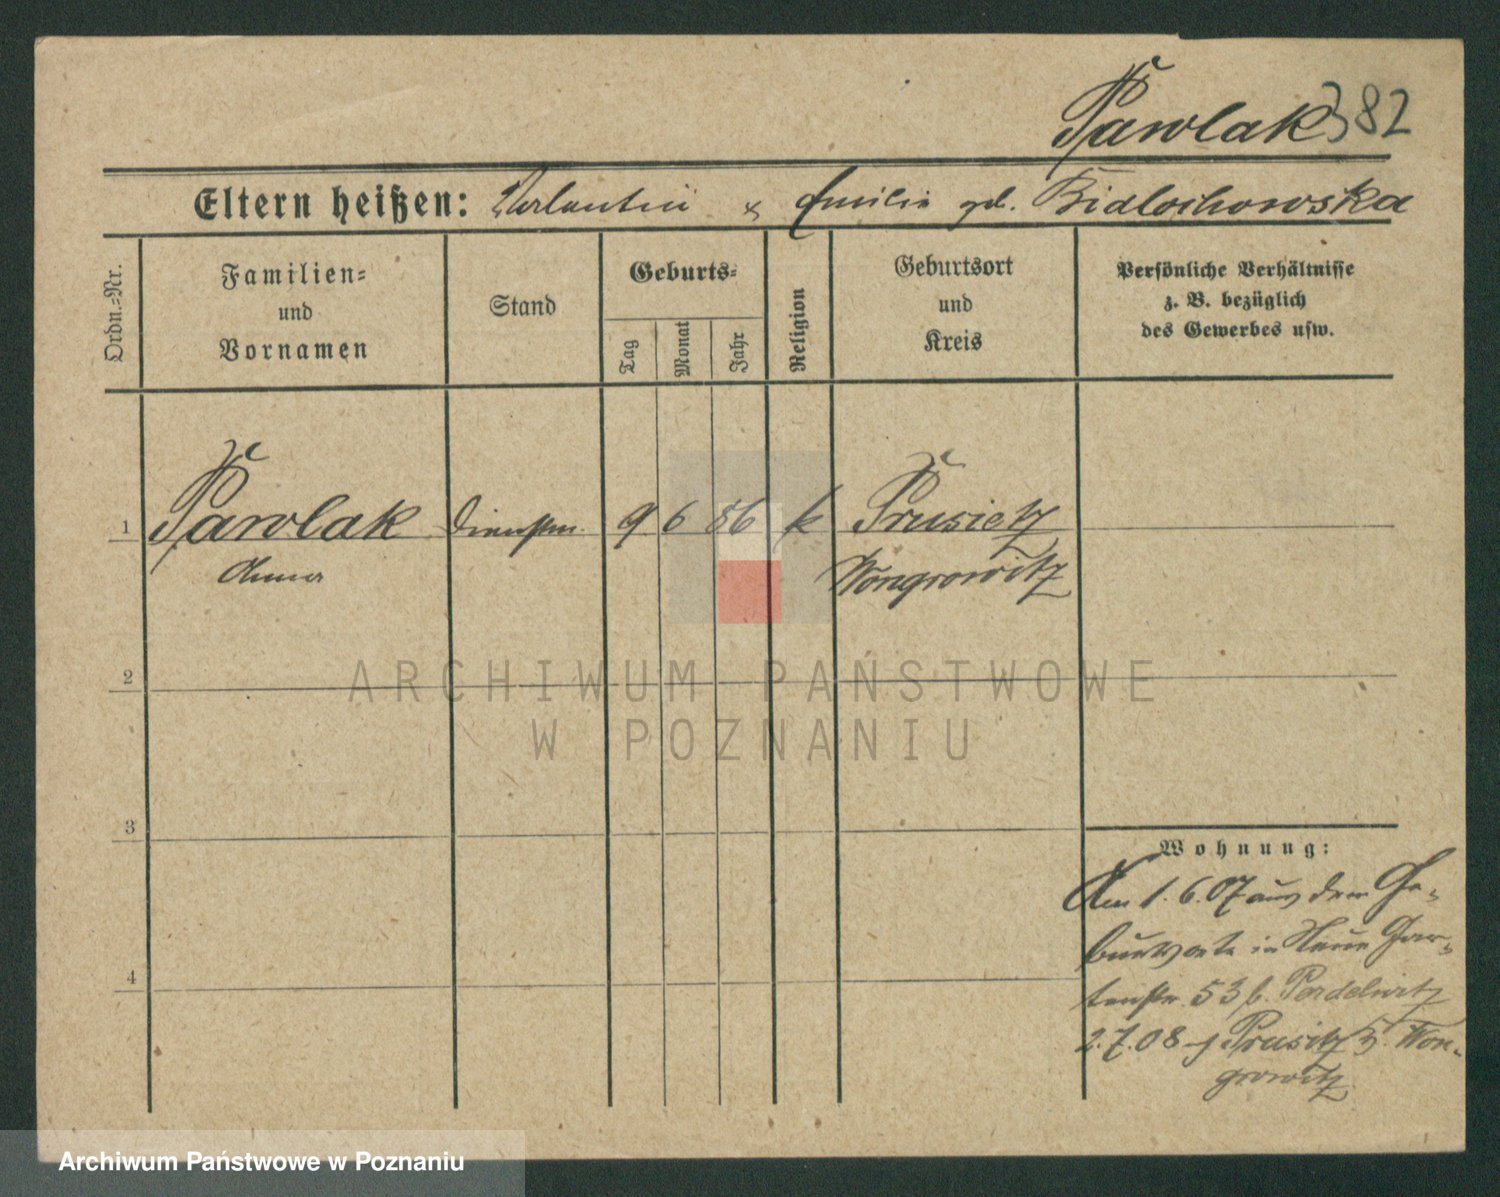 Pawlak 382
Eltern heißen: Valentin & Emilie geb. Bidlochowska
Ordn.-Nr.
Familien-
und
Vornamen
Stand
Geburts-
Tag
Monat
Jahr
Religion
Geburtsort
und
Kreis
Persönliche Verhältnisse
z. B. bezüglich
des Gewerbes usw.
1 Pawlak Dienstm. 9 6 86 k Prusietz
Anna Wongrowitz
2
3
4
Wohnung:
Am 1. 6. 07 aus dem Ge-
burtsorte in Neue Gar-
tenstr. 53 b. Perdelwitz
2.7.08 Prusitz Won-
growitz
ARCHIWUM PAŃSTWOWE
W POZNANIU
Archiwum Państwowe w Poznaniu